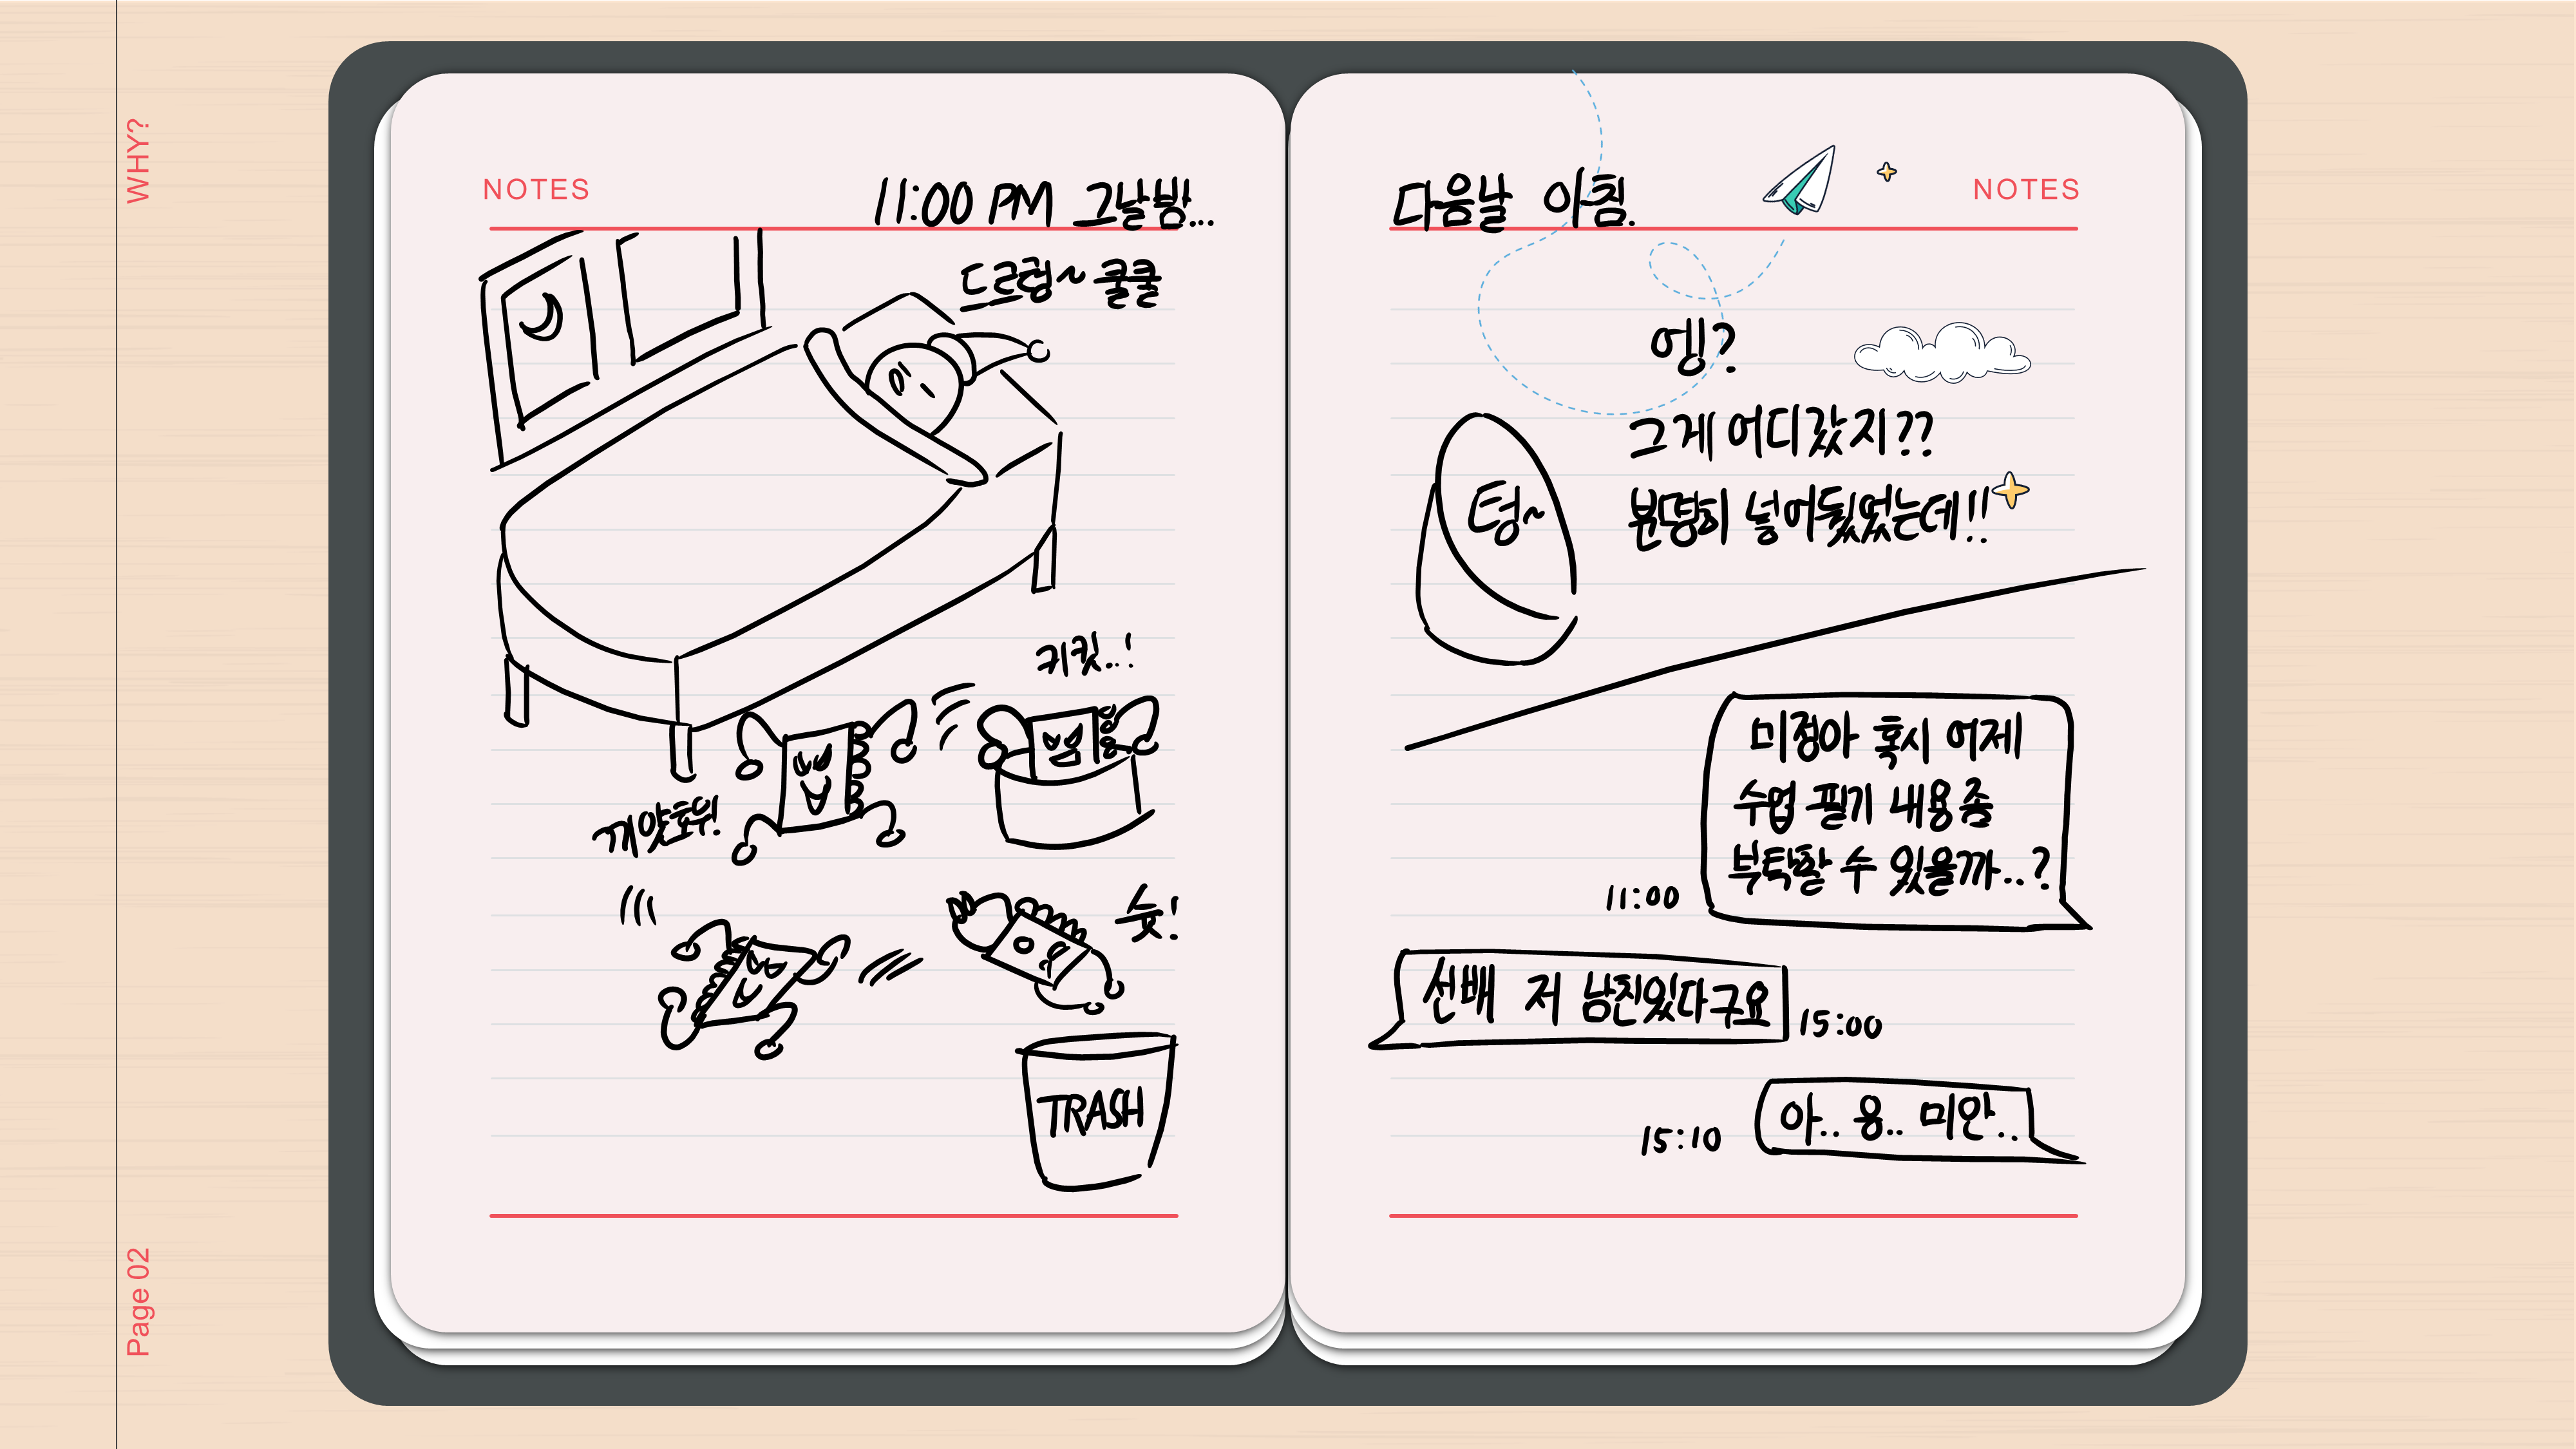 WHY?
Page 02
NOTES
11:00 PM 그날밤...
드르렁~ 쿨쿨
키킷..!
끼얏호우!
슛!
TRASH
다음날 아침.
NOTES
엥?
그게 어디갔지??
분명히 넣어뒀었는데!!
텅~
미정아 혹시 어제
수업 필기 내용 좀
부탁할 수 있을까..?
11:00
선배 저 남친있다구요
15:00
아.. 웅.. 미안..
15:10